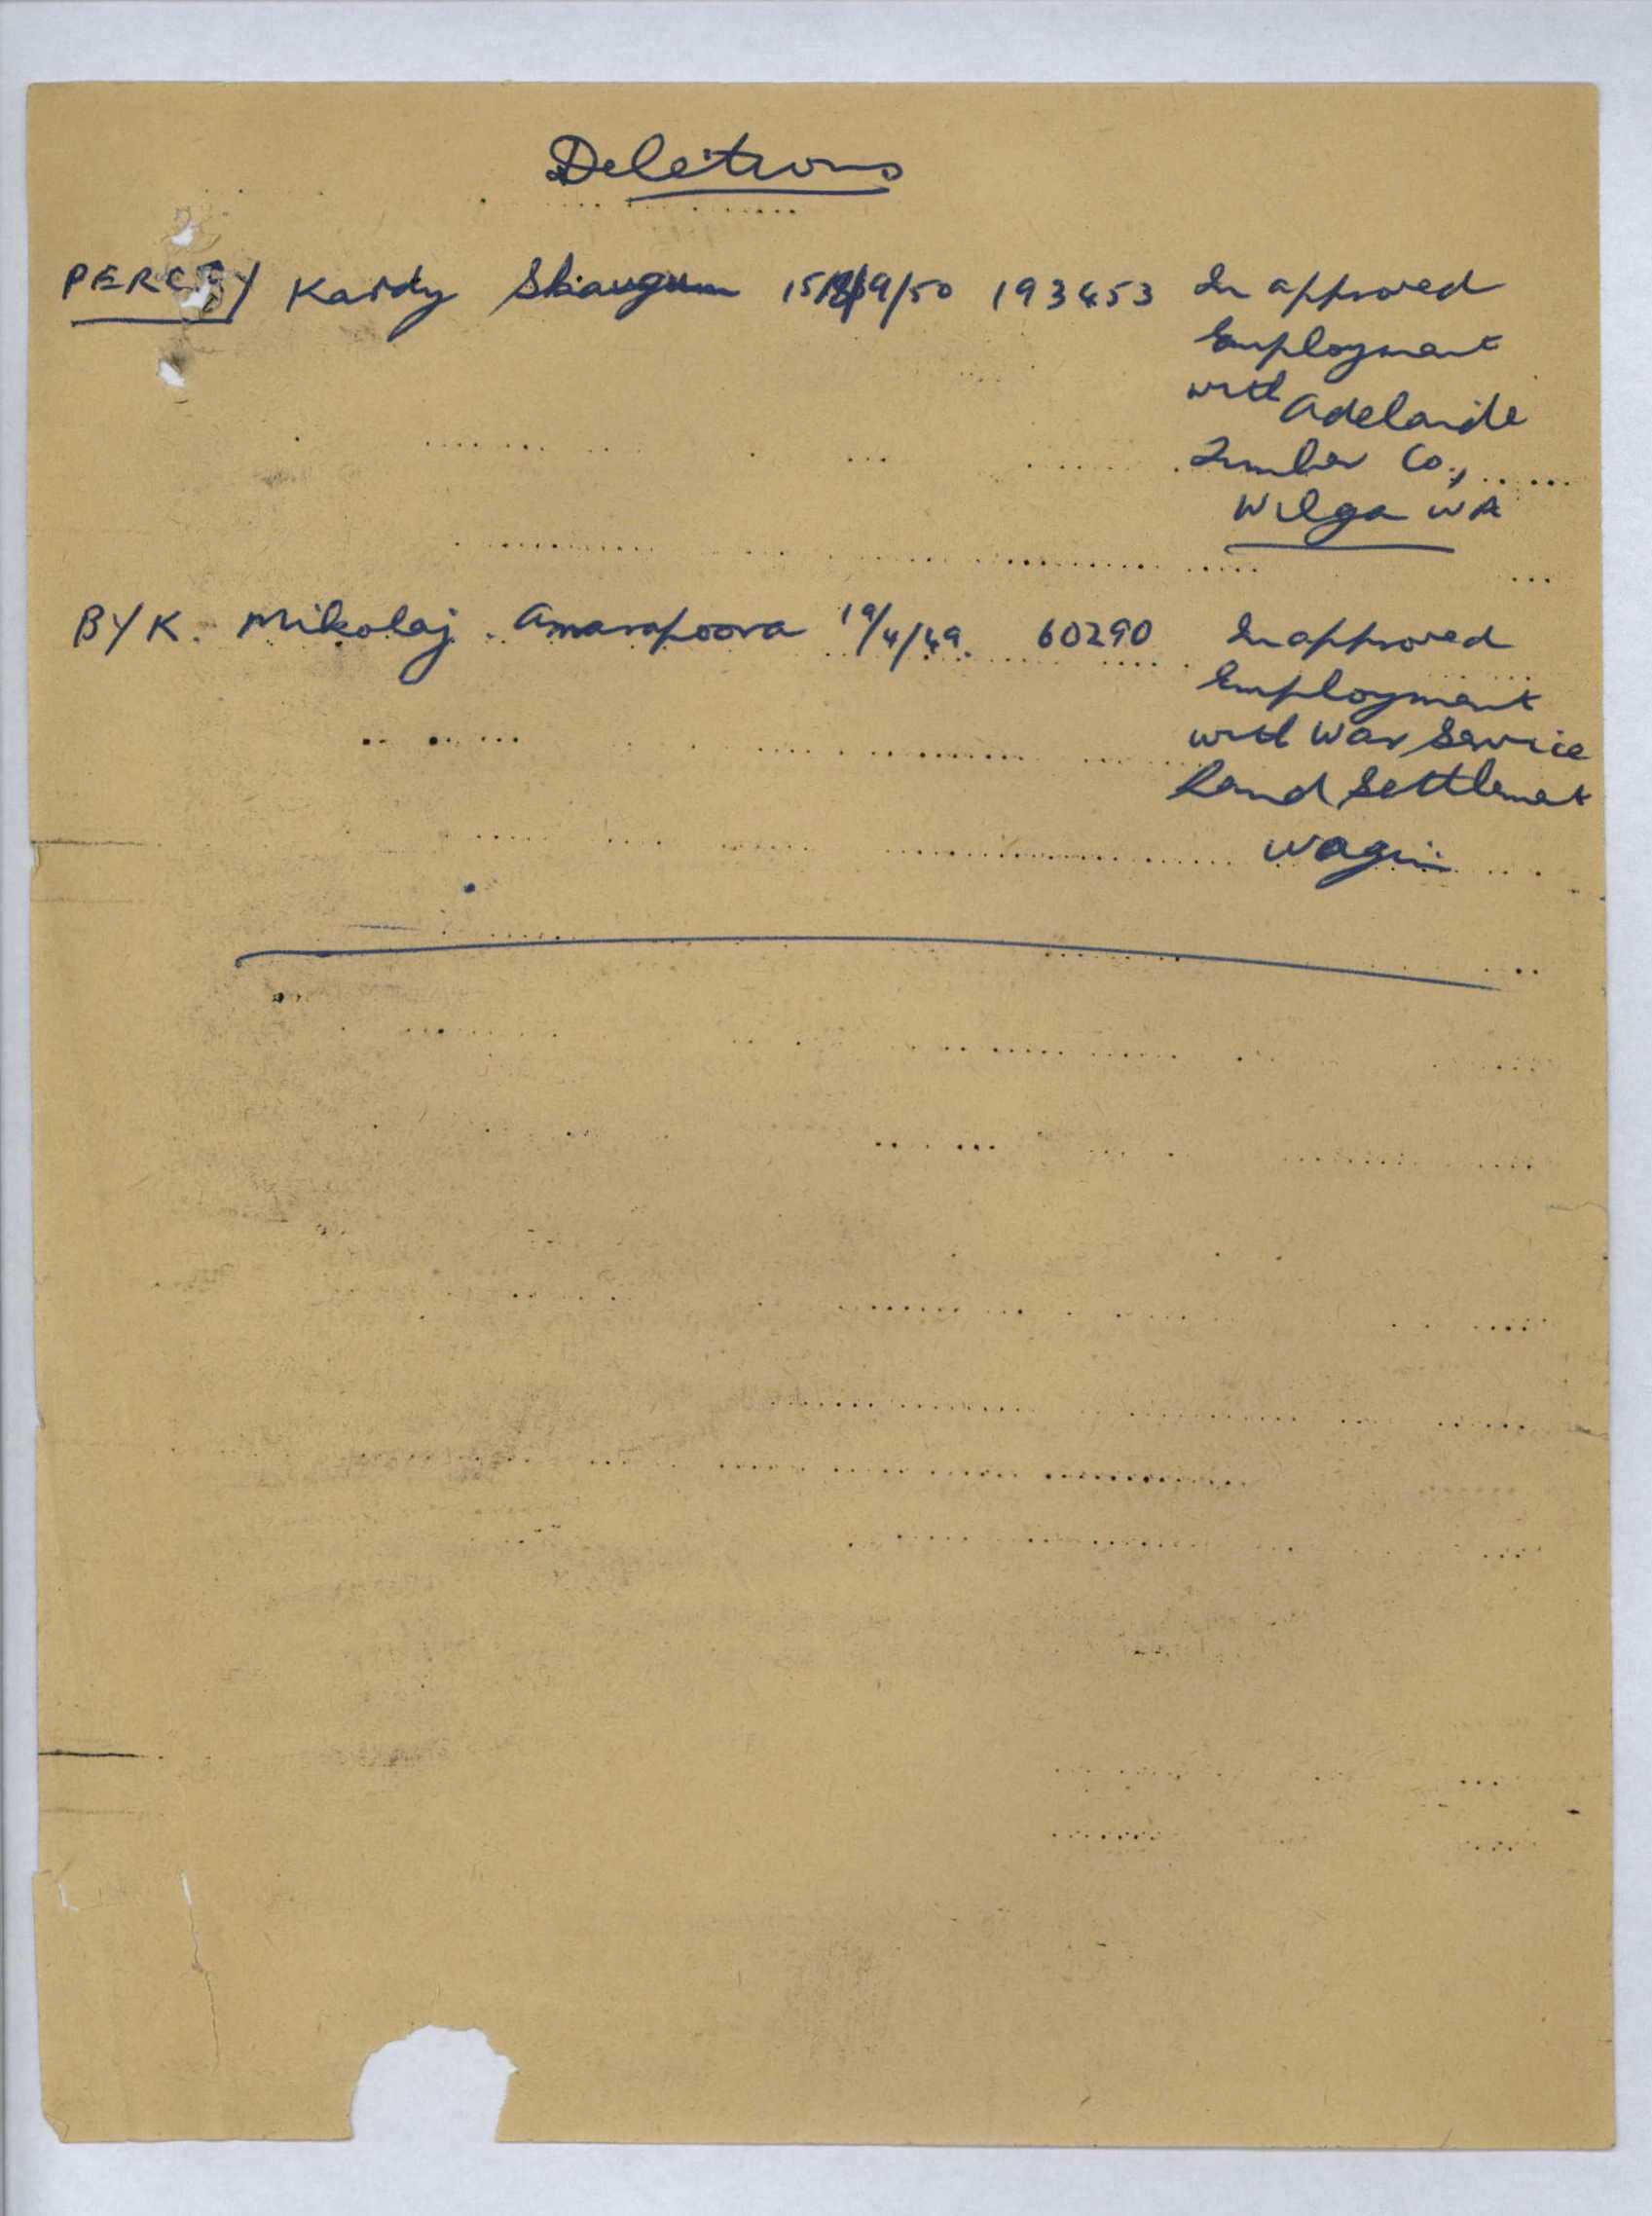 Deletions
Kardy Skaugum 15/9/50 193453 In approved
Employment
with Adelaide
Timber Co.,
Wilga WA
BYK. Mikolaj. Amarapoora 19/4/49. 60290 In approved
Employment
with War Service
Land Settlement
Wagin